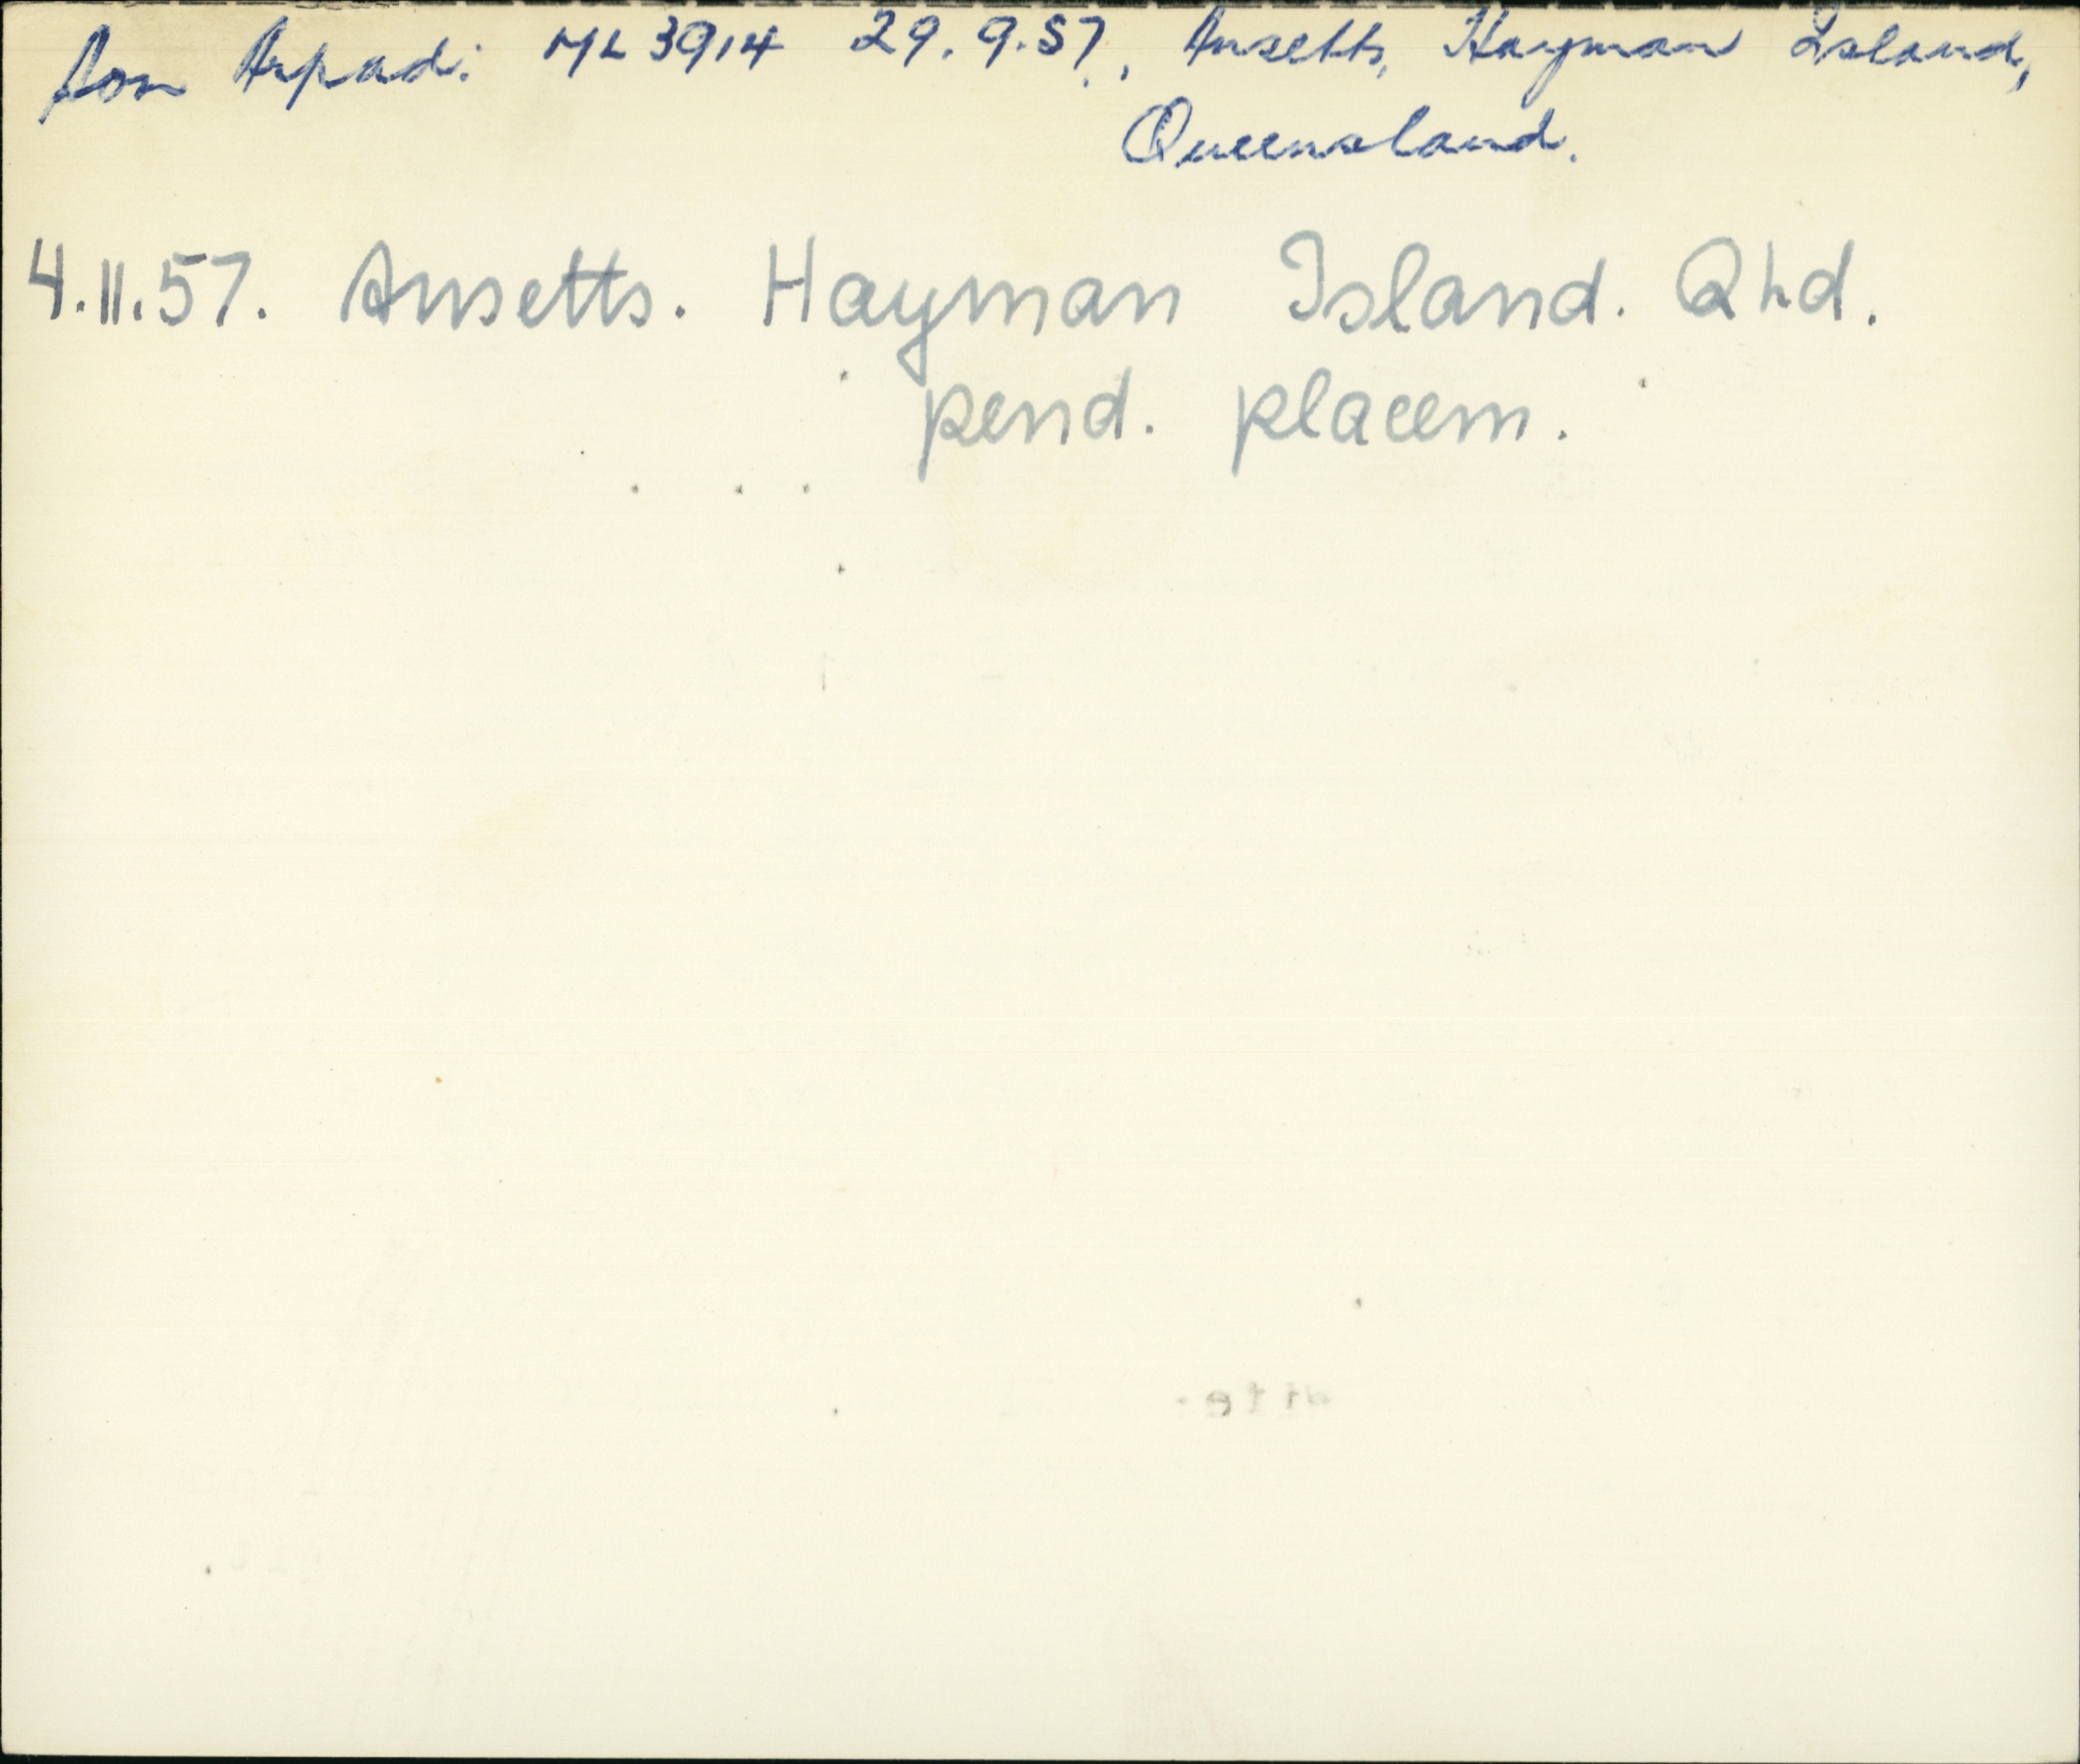 son Arpad: ML 3914 29.9.57, Ansetts, Hayman Island,
Queensland.
4.11.57. Ansetts. Hayman Island. Qld.
pend. placem.